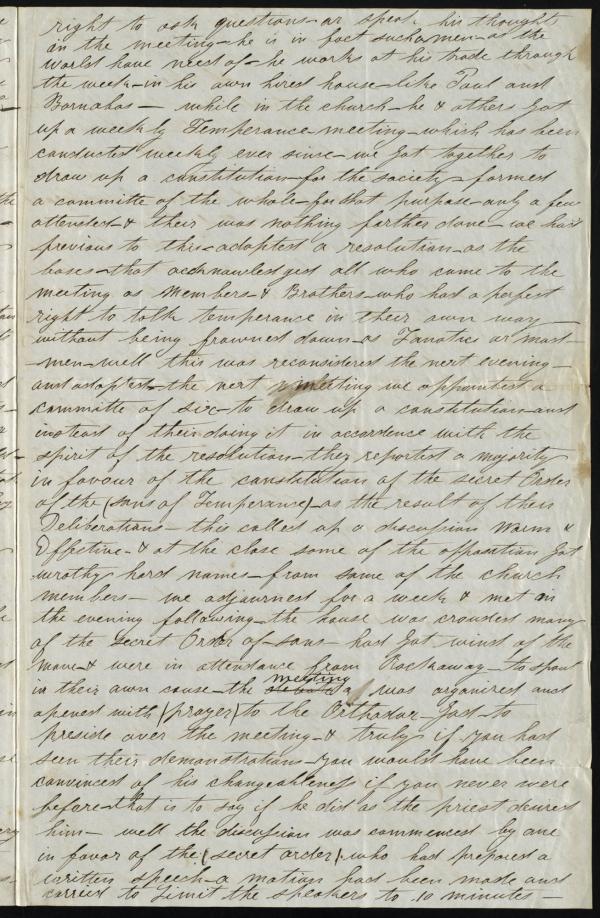 right to ask questions or speak his thoughts
in the meeting—he is in fact such a man—as the
world have need of—he works at his trade through
the week—in his own hired house—like Paul and
Barnabas— while in the church—he & others got
up a weekly Temperance meeting—which has been
conducted weekly ever since—we got together to
draw up a constitution—for the society—formed
a committe of the whole—for that purpose only a few
attended—& their was nothing farther done—we had
previous to this—adopted a resolution—as the
bases—that acknowledged all who came to the
meeting as Members—& Brothers—who had a perfect
right to talk temperance in their own way—
without being frowned down—as Fanatics or mad—
men—well this was reconsidered the next evening—
and adopted—the next meeting we appointed a
committe of six—to draw up a constitution—and
instead of their doing it in accordence with the
spirit of the resolution—they reported a majority
in favour of the constitution of the secret Order
of the (sons of Temperance)—as the result of their
Deliberations—this called up a discussion warm &
Effective—& at the close some of the opposition got
wrothy hard names—from some of the church
members— we adjourned for a week & met on
the evening following—the house was crowded many
of the Secret Order of—sons—had got wind of the
move—& were in attendance from Rockaway—to spout
in their own cause—the meeting was organized and
opened with (prayer) to the Orthodox—God—to
preside over the meeting—& truly if you had
seen their demonstrations—you would have been
convinced of his changeableness if you never were
before—that is to say if he did as the priest desired
him— well the discussion was commenced by one
in favor of the (secret order) who had prepared a
written speech—a motion had been made and
carried to Limit the speakers to 10 minutes—